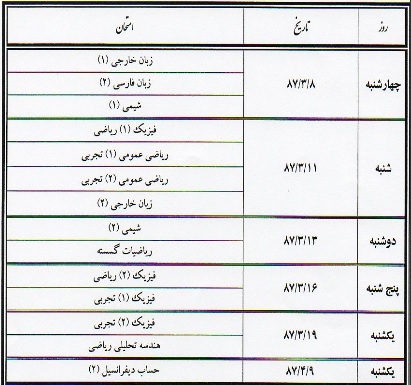 روز تاریخ امتحان
چهارشنبه ۸۷/۳/۸ زبان خارجی (۱)
زبان فارسی (۲)
شیمی (۱)
شنبه ۸۷/۳/۱۱ فیزیک (۱) ریاضی
ریاضی عمومی (۱) تجربی
ریاضی عمومی (۲) تجربی
زبان خارجی (۲)
دوشنبه ۸۷/۳/۱۳ شیمی (۲)
ریاضیات گسسته
پنج شنبه ۸۷/۳/۱۶ فیزیک (۲) ریاضی
فیزیک (۱) تجربی
یکشنبه ۸۷/۳/۱۹ فیزیک (۲) تجربی
هندسه تحلیلی ریاضی
یکشنبه ۸۷/۴/۹ حساب دیفرانسیل (۲)